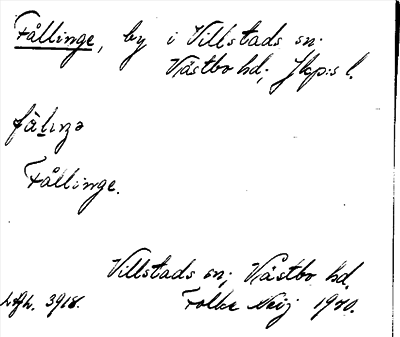 Fållinge, by i Villstads sn.
Västbo hd; Jkp:s l.
fålıŋə
Fållinge.
Villstads sn; Västbo hd.
3918. Folke 1920.